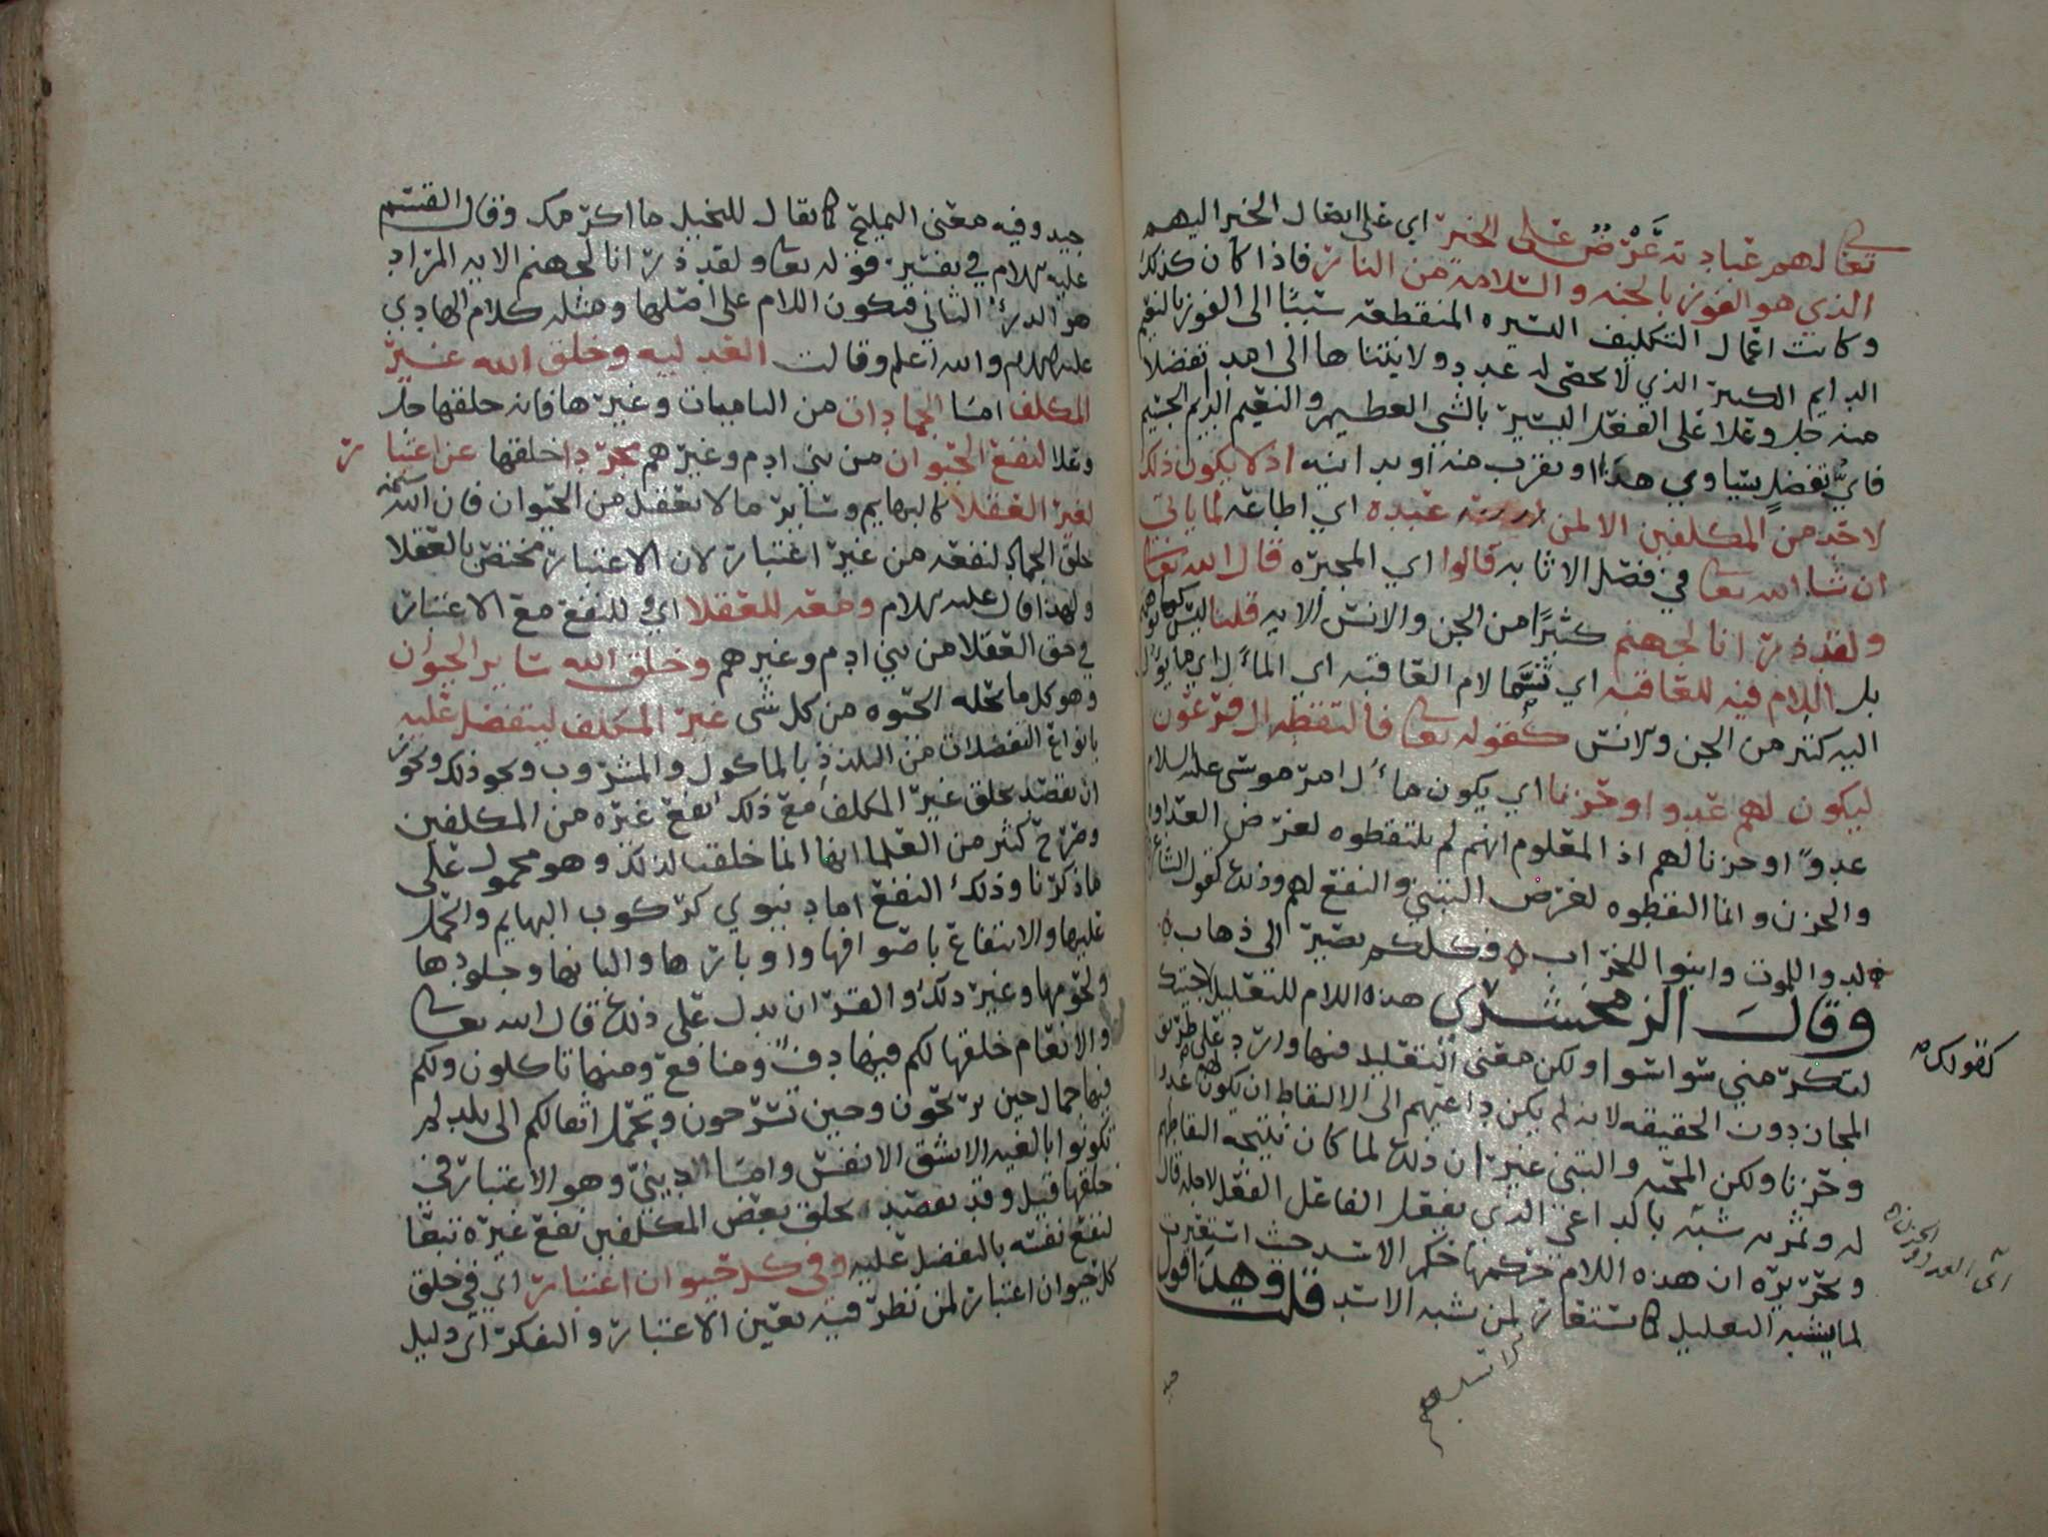 تعالهم عبادته عَرْضٌ على الخير اي على ايصال الخير اليهم
الذي هو الفوز بالجنه والسلامه من النار فاذا كان كذلك
وكانت اعمال التكليف اليسيره المنقطعه سببًا الى الفوز بالنعيم
الدايم الكبير الذي لا يحصى له عدد ولا يتناها الى امد تفضلا
منه جل وعلا على الفعل اليسير بالشي العظيم والنعيم الدايم الجسيم
فايُّ تفضلٍ يساوي هذا او يقرب منه او يدانيه اذ لا يكون ذلك
لاحد من المكلفين الا لمن عبده اي اطاعه لما ياتي
ان شاء الله تعا في فصل الاثابه قالوا اي المجبره قال الله تعا
ولقد ذرانا لجهنم كثيرًا من الجن والانس الايه قلنا ليس كما توهموا
بل اللام فيه للعاقبه اي تسمّا لام العاقبه اي المآل اي ما يؤل
اليه كثير من الجن والانس كقوله تعا فالتقطه ال فرعون
ليكون لهم عدوا وحزنا اي يكون مآل امر موسى عليه السلام
عدوًّا وحزنا لهم اذ المعلوم انهم لم يلتقطوه لغرض العداوه
والحزن وانما التقطوه لغرض التبني والنفع لهم وذلك كقول الشاعر
لدوا للموت وابنوا للخراب ه فكلكم يصير الى ذهاب ه
وقال الزمخشري هذه اللام للتعليل لاجيتك
لتكرمني سوا سوا ولكن معنى التعليل فيها وارد على طريق
المجاز دون الحقيقه لانه لم يكن داعيهم الى الالتقاط ان يكون لهم عدوا
وحزنا ولكن المحبه والتبني غير ان ذلك لما كان نتيجه التقاطهم
له وثمرته شبه بالداعي الذي يفعل الفاعل الفعل لاجله قال
وتحريره ان هذه اللام حكمها حكم الاسد حيث استعيرت
لما يشبه التعليل كما يستعار لمن يشبه الاسد قلت وهذا قول
كقولك
اي العداوه والحزن
جيد وفيه معنى التمليح كما يقال للبخيل ما اكرمك وقال القسم
عليه السلام في تفسير قوله تعا ولقد ذرانا لجهنم الايه المراد
هو الذرء الثاني فيكون اللام على اصلها ومثله كلام الهادي
عليه السلام والله اعلم وقالت العدليه وخلق الله غير
المكلف امّا الجمادات من الناميات وغيرها فانه خلقها جل
وعلا لنفع الحيوان من بني ادم وغيرهم مجردا خلقها عن اعتبار
لغير العقلا كالبهايم وساير ما لا يعقل من الحيوان فان الله سبحنه
خلق الجماد لنفعه من غير اعتبار لان الاعتبار مختص بالعقلا
ولهذا قال عليه السلام ومعه للعقلا اي للنفع مع الاعتبار
في حق العقلا من بني ادم وغيرهم وخلق الله ساير الحيوان
وهو كل ما تحله الحيوه من كل شي غير المكلف ليتفضل عليه
بانواع التفضلات من التلذذ بالماكول والمشروب ونحو ذلك ونحو
ان يقصد بخلق غير المكلف مع ذلك نفع غيره من المكلفين
وصرح كثير من العلما انها انما خلقت لذلك وهو محمول على
ما ذكرنا وذلك النفع اما دنيوي كركوب البهايم والحمل
عليها والانتفاع باصوافها واوبارها والبانها وجلودها
ولحومها وغير ذلك والقران يدل على ذلك قال الله تعا
والانعام خلقها لكم فيها دفٌ ومنافع ومنها تاكلون ولكم
فيها جمال حين تريحون وحين تسرحون وتحمل اثقالكم الى بلد لم
تكونوا بالغيه الا بشق الانفس وامّا الديني وهو الاعتبار في
خلقها قيل وقد يقصد بخلق بعض المكلفين نفع غيره تبعًا
لنفع نفسه بالتفضل عليه وفي كل حيوان اعتبار اي في خلق
كل حيوان اعتبار لمن نظر فيه بعين الاعتبار والتفكر اي دليل